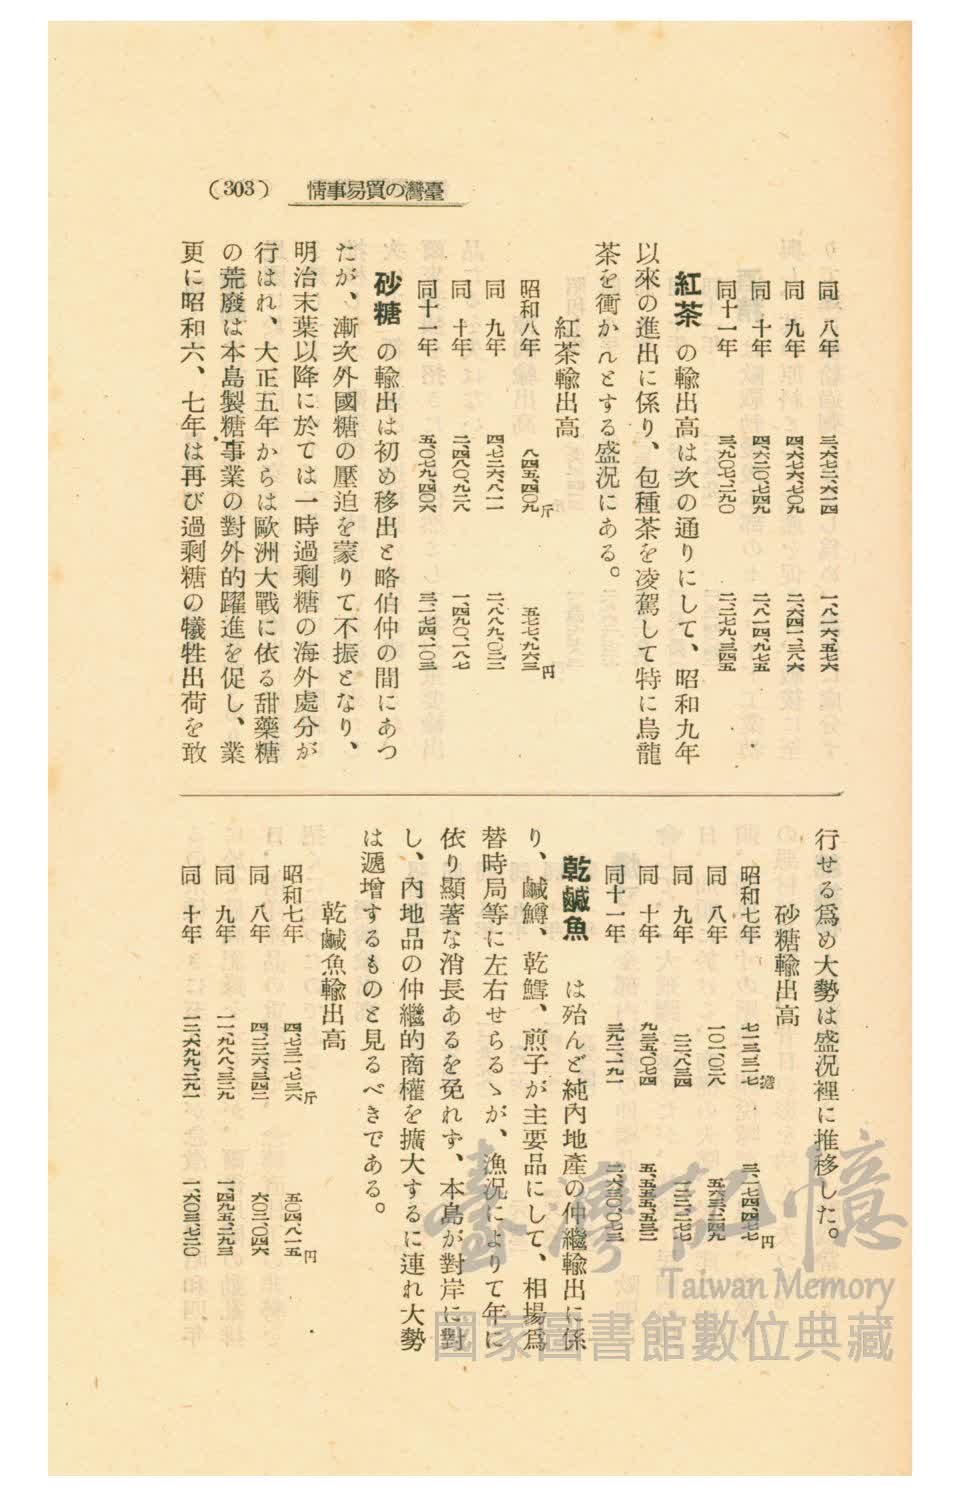 臺灣の貿易事情 (303)
同 八年 三、六七三、六一四 一、八一六、五七六
同 九年 四、六七六、七〇九 二、六四一、三八六
同 十年 四、六二〇、七四九 二、八一四、九七五
同十一年 三、九〇七、二九〇 二、二七九、三四五
紅茶 の輸出高は次の通りにして、昭和九年
以來の進出に係り、包種茶を凌駕して特に烏龍
茶を衝かんとする盛況にある。
紅茶輸出高
昭和八年 八四五、四〇九斤 五七七、九六三円
同 九年 四、七二六、八一一 二、八八九、〇三二
同 十年 二、四八〇、九二八 一、四九〇、一八七
同十一年 五、〇七九、四〇六 三、一七四、一〇三
砂糖 の輸出は初め移出と略伯仲の間にあつ
たが、漸次外國糖の壓迫を蒙りて不振となり、
明治末葉以降に於ては一時過剩糖の海外處分が
行はれ、大正五年からは歐洲大戰に依る甜藥糖
の荒廢は本島製糖事業の對外的躍進を促し、業
更に昭和六、七年は再び過剩糖の犧牲出荷を敢
行せる爲め大勢は盛況裡に推移した。
砂糖輸出高
昭和七年 七一三、三二七擔 三、一七四、四七七円
同 八年 一〇一、〇二八 五六三、二四九
同 九年 二二、八三四 一三二、二七七
同 十年 九三五、〇七四 五、五五五、五三二
同十一年 三九二、一九一 二、六三〇、〇七三
乾鹹魚 は殆んど純內地產の仲繼輸出に係
り、鹹鱒、乾鱈、煎子が主要品にして、相場爲
替時局等に左右せらるゝが、漁況によりて年に
依り顯著な消長あるを免れず、本島が對岸に對
し、內地品の仲繼的商權を擴大するに連れ大勢
は遞增するものと見るべきである。
乾鹹魚輸出高
昭和七年 四、七三一、七三六斤 五〇四、八一五円
同 八年 四、二二六、三四二 六〇二、〇四六
同 九年 一一、九八八、三二九 一、四九五、二九三
同 十年 一二、六九九、二九一 一、六〇三、七二〇
臺灣記憶
Taiwan Memory
國家圖書館數位典藏